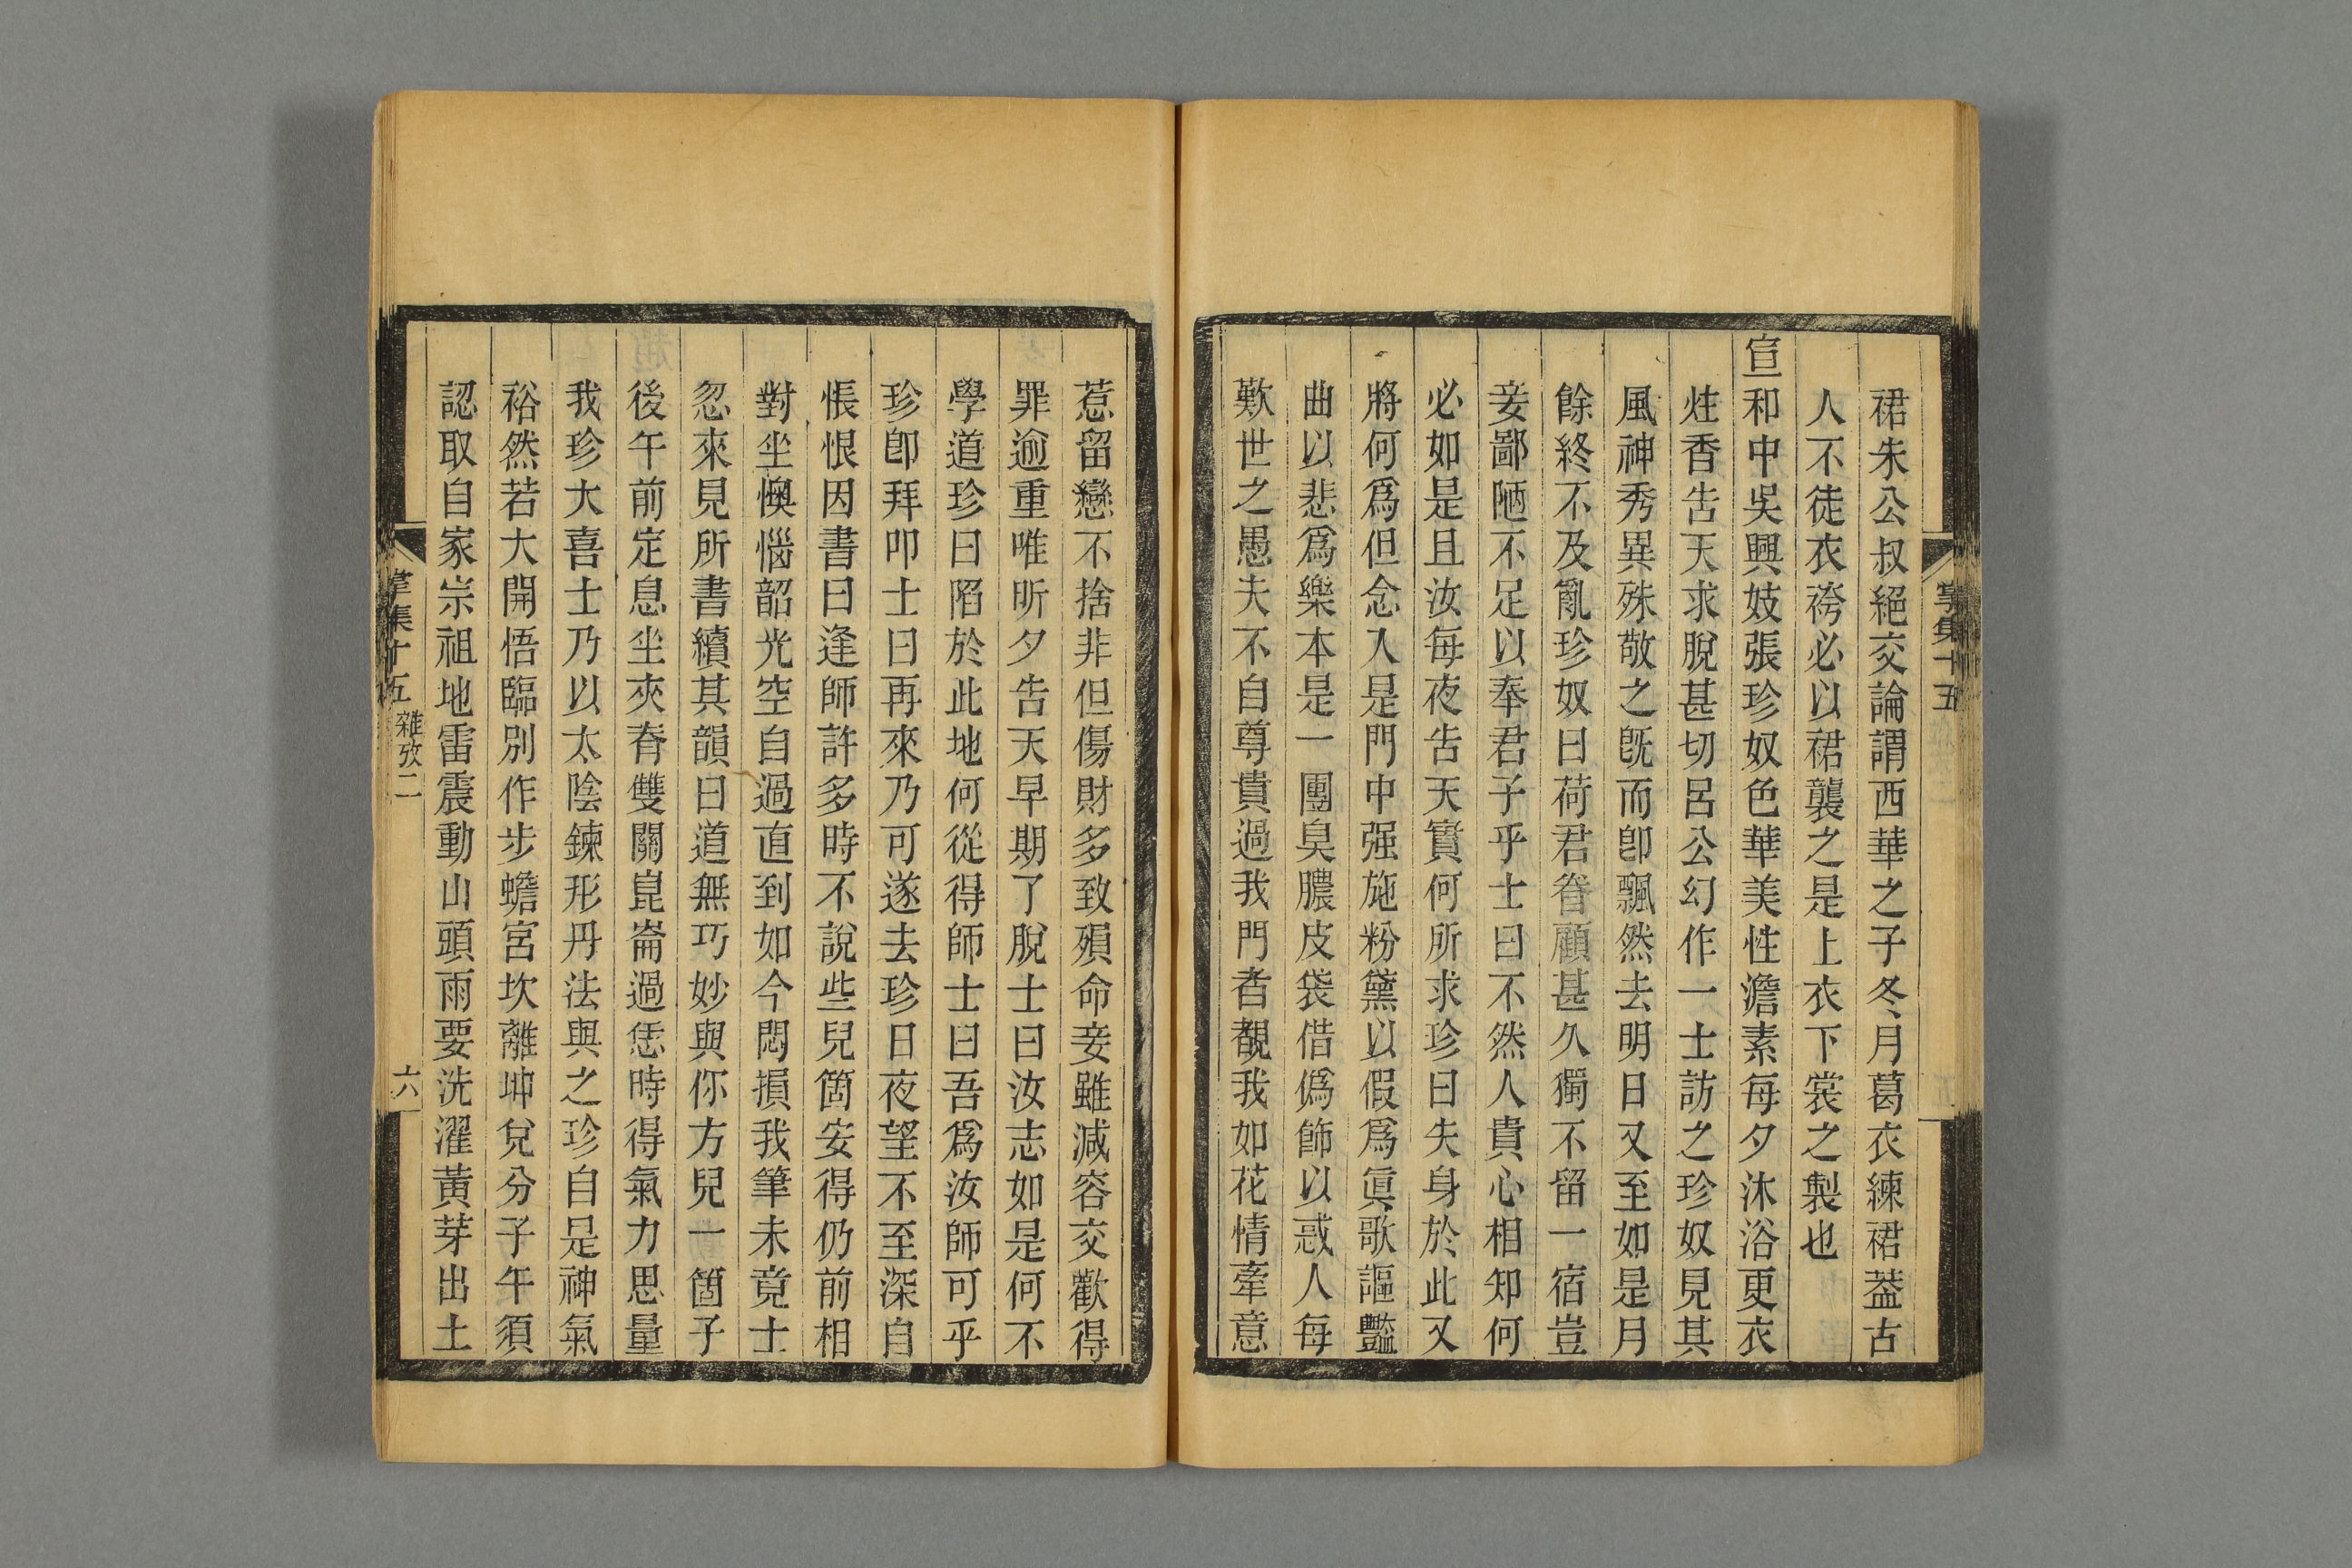 裙朱公叔絕交論謂西華之子冬月葛衣練裙葢古
人不徒衣袴必以裙襲之是上衣下裳之製也
宣和中吳興妓張珍奴色華美性澹素每夕沐浴更衣
炷香告天求脫甚切呂公幻作一士訪之珍奴見其
風神秀異殊敬之旣而卽飄然去明日又至如是月
餘終不及亂珍奴曰荷君眷顧甚久獨不留一宿豈
妾鄙陋不足以奉君子乎士曰不然人貴心相知何
必如是且汝每夜告天實何所求珍曰失身於此又
將何爲但念入是門中强施粉黛以假爲眞歌謳豔
曲以悲爲樂本是一團臭膿皮袋借僞飾以惑人每
歎世之愚夫不自尊貴過我門者覩我如花情牽意
掌集十五
惹留戀不捨非但傷財多致殞命妾雖減容交歡得
罪逾重唯昕夕告天早期了脫士曰汝志如是何不
學道珍曰陷於此地何從得師士曰吾爲汝師可乎
珍卽拜叩士曰再來乃可遂去珍日夜望不至深自
悵恨因書曰逢師許多時不說些兒箇安得仍前相
對坐懊惱韶光空自過直到如今悶損我筆未竟士
忽來見所書續其韻曰道無巧妙與你方兒一箇子
後午前定息坐夾脊雙關崑崙過恁時得氣力思量
我珍大喜士乃以太陰鍊形丹法與之珍自是神氣
裕然若大開悟臨別作步蟾宮坎離坤兌分子午須
認取自家宗祖地雷震動山頭雨要洗濯黃芽出土
掌集十五 雜攷二 六